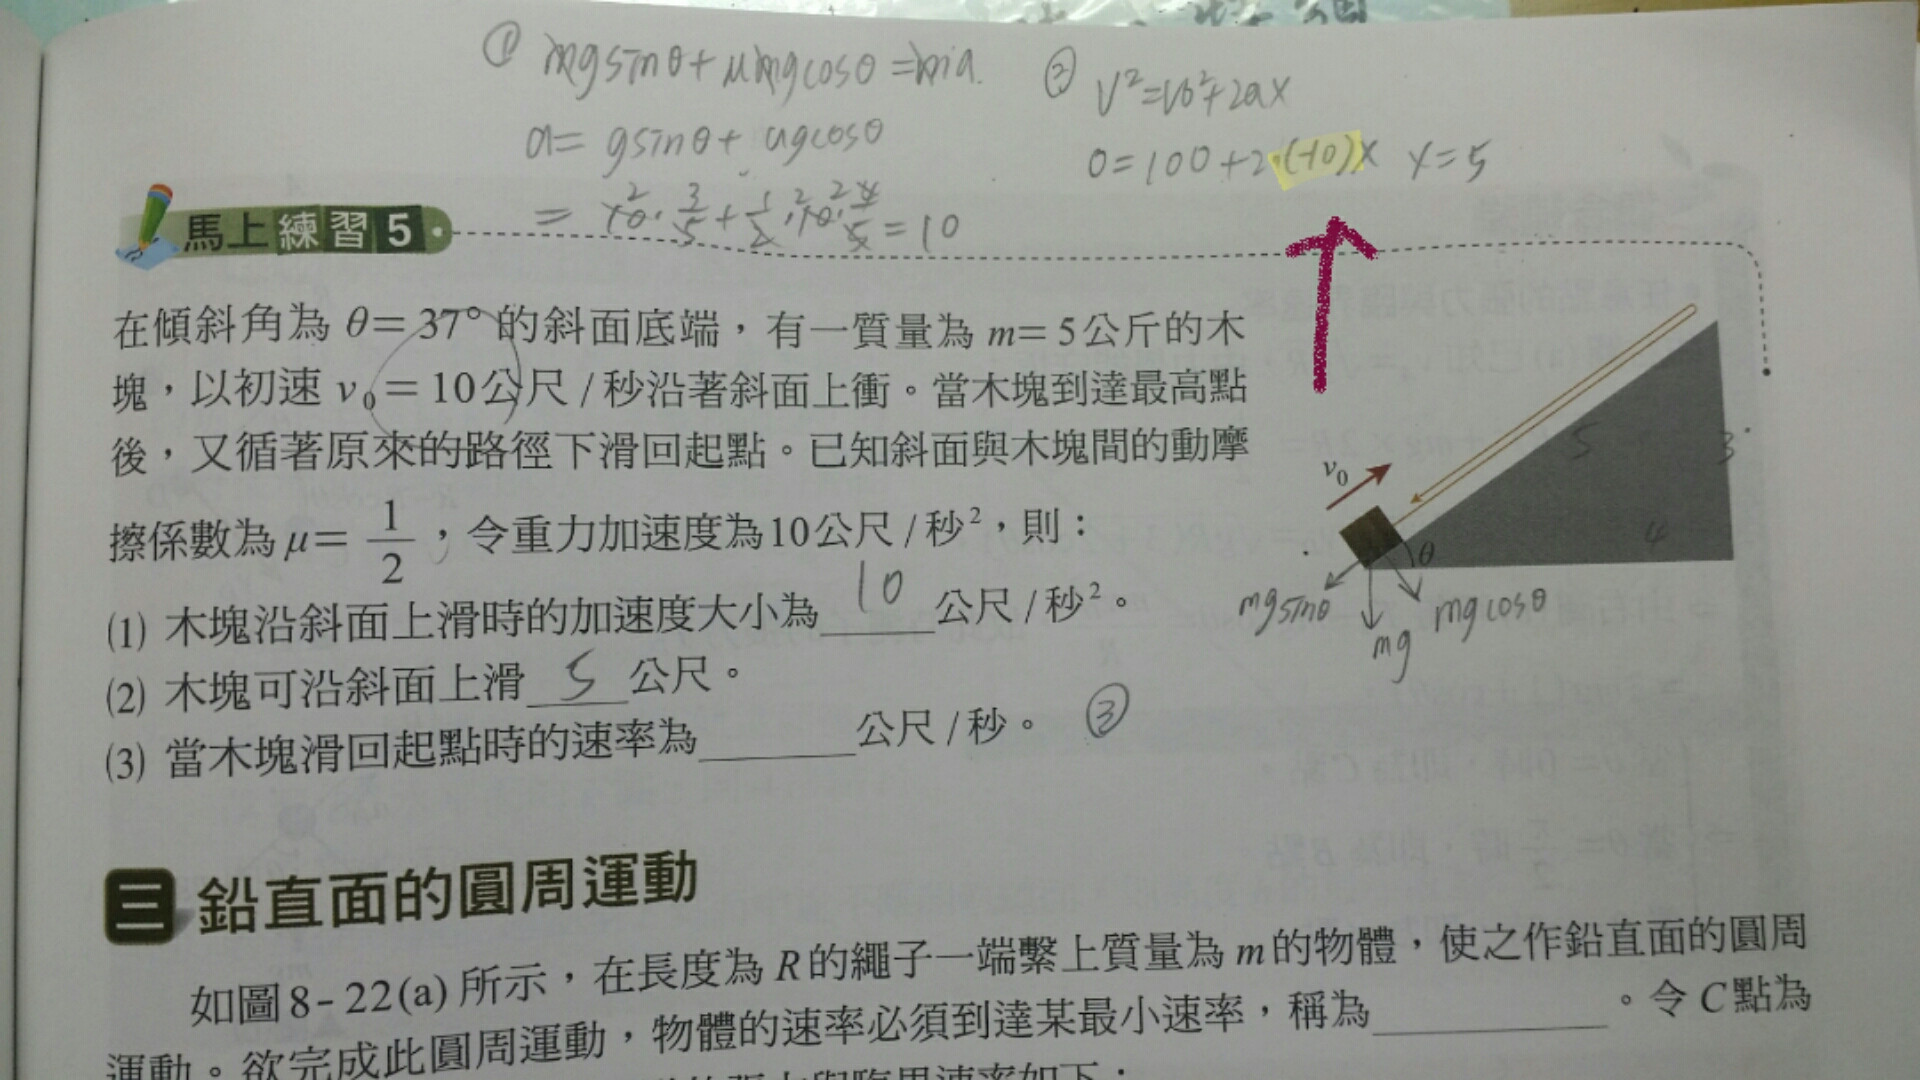 ① mgsinθ+μmgcosθ=ma.
a= gsinθ+ μgcosθ
= 10²·3/5+1/2·²10·²4/5=10
② V²=V0²+2ax
0=100+2·(-10)X X=5
馬上練習5
在傾斜角為 θ=37°的斜面底端，有一質量為 m=5公斤的木
塊，以初速 v₀=10公尺/秒沿著斜面上衝。當木塊到達最高點
後，又循著原來的路徑下滑回起點。已知斜面與木塊間的動摩
擦係數為 μ=1/2，令重力加速度為10公尺/秒²，則：
(1) 木塊沿斜面上滑時的加速度大小為 10 公尺/秒²。
(2) 木塊可沿斜面上滑 5 公尺。
(3) 當木塊滑回起點時的速率為______公尺/秒。 ③
v₀
θ
5
3
4
mgsinθ
mg
mgcosθ
三 鉛直面的圓周運動
如圖8-22(a)所示，在長度為R的繩子一端繫上質量為m的物體，使之作鉛直面的圓周
運動。欲完成此圓周運動，物體的速率必須到達某最小速率，稱為__________。令C點為